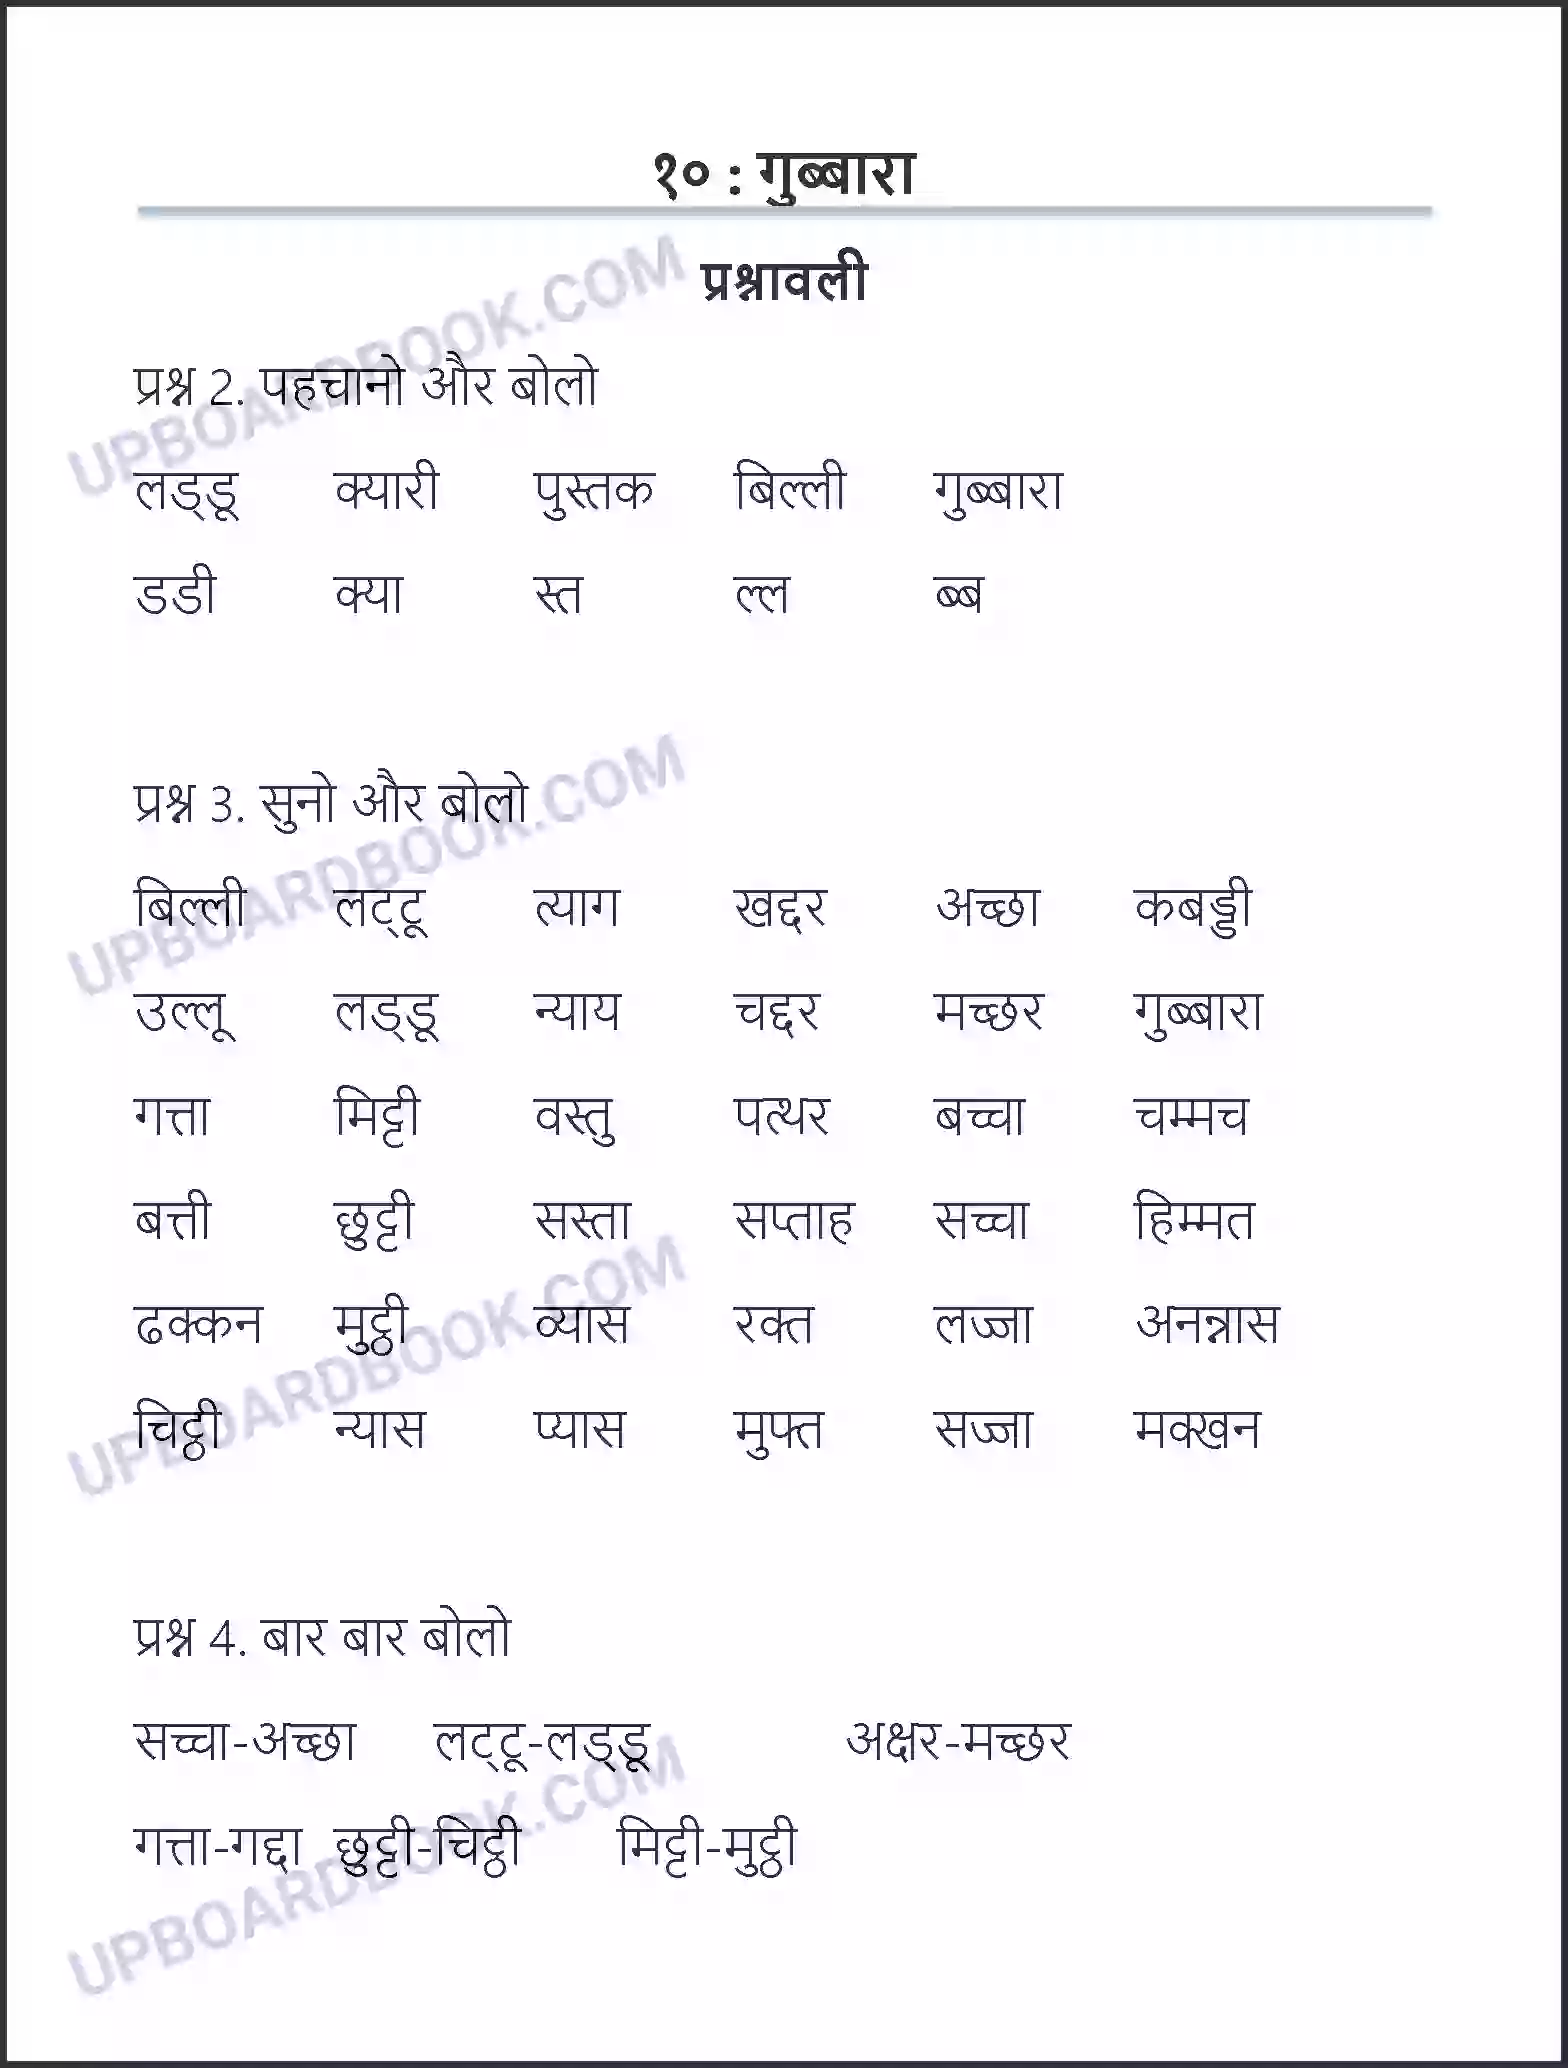 १० : गुब्बारा
प्रश्नावली
प्रश्न 2. पहचानो और बोलो
लड्डू क्यारी पुस्तक बिल्ली गुब्बारा
डडी क्या स्त ल्ल ब्ब
प्रश्न 3. सुनो और बोलो
बिल्ली लट्टू त्याग खद्दर अच्छा कबड्डी
उल्लू लड्डू न्याय चद्दर मच्छर गुब्बारा
गत्ता मिट्टी वस्तु पत्थर बच्चा चम्मच
बत्ती छुट्टी सस्ता सप्ताह सच्चा हिम्मत
ढक्कन मुट्ठी व्यास रक्त लज्जा अनन्नास
चिट्ठी न्यास प्यास मुफ्त सज्जा मक्खन
प्रश्न 4. बार बार बोलो
सच्चा-अच्छा लट्टू-लड्डू अक्षर-मच्छर
गत्ता-गद्दा छुट्टी-चिट्ठी मिट्टी-मुट्ठी
UPBOARDBOOK.COM
UPBOARDBOOK.COM
UPBOARDBOOK.COM
UPBOARDBOOK.COM